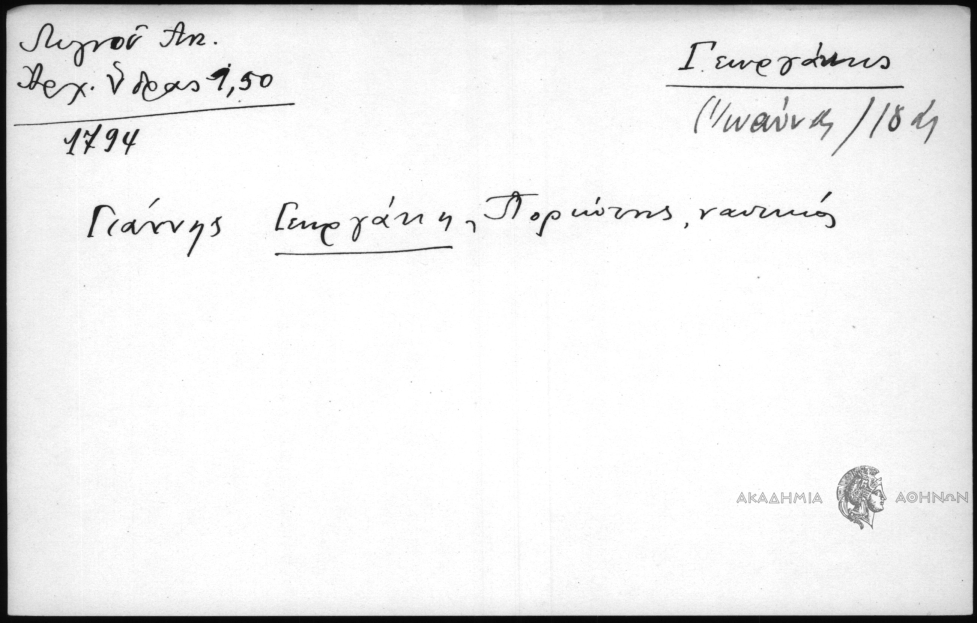 Λιγνοῦ Ἀντ.
Ἀρχ. Ὕδρας 1,50
1794
Γεωργάκης
(Ἰωάννης) 18 ά;
Γιάννης Γεωργάκη, Ποριώτης, ναυτικός
ΑΚΑΔΗΜΙΑ ΑΘΗΝΩΝ